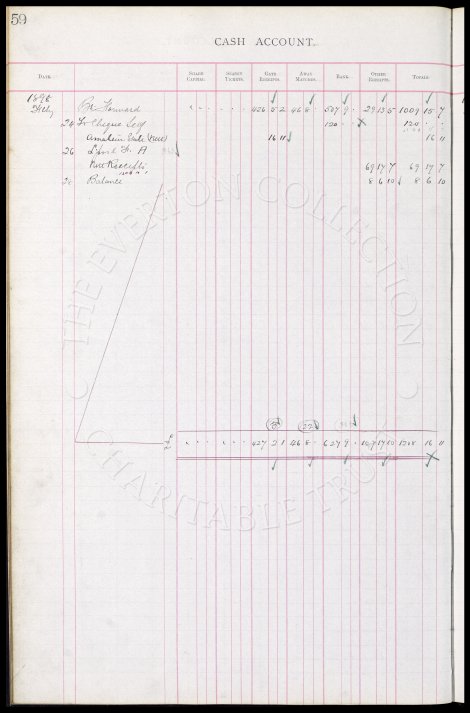 59
CASH ACCOUNT.
DATE. SHARE CAPITAL. SEASON TICKETS. GATE RECEIPTS. AWAY MATCHES. BANK. OTHER RECEIPTS. TOTALS.
1898
Feby Bt Forward 426 5 2 46 8 - 507 9 - 29 13 5 1009 15 7
24 To Cheque 120 - - 120 - -
Amateur 16 11 16 11
26 L'pool A
Receipts 69 17 7 69 17 7
28 Balance 8 6 10 8 6 10
£ 427 2 1 46 8 - 627 9 - 107 17 10 1208 16 11
THE EVERTON COLLECTION
CHARITABLE TRUST